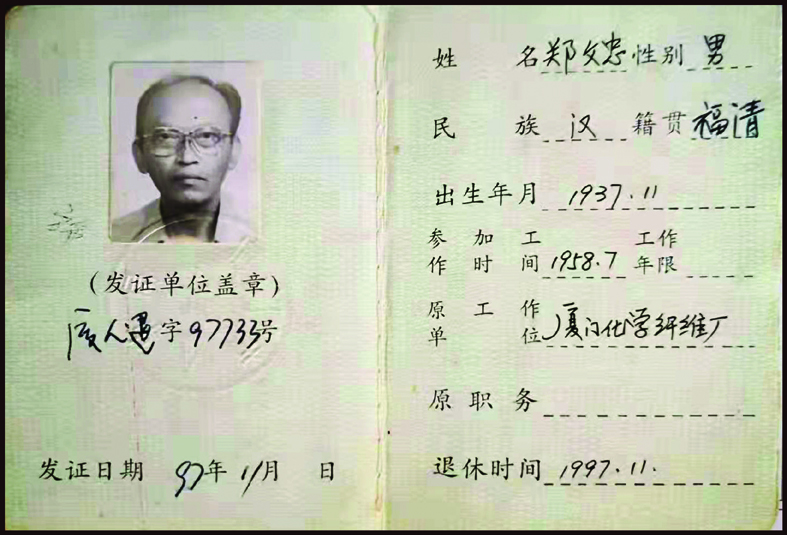 (发证单位盖章)
厦人退字97733号
发证日期 97年 11月 日
姓名 郑文忠 性别 男
民族 汉 籍贯 福清
出生年月 1937.11
参加工作时间 1958.7 工作年限
原工作单位 厦门化学纤维厂
原职务
退休时间 1997.11.